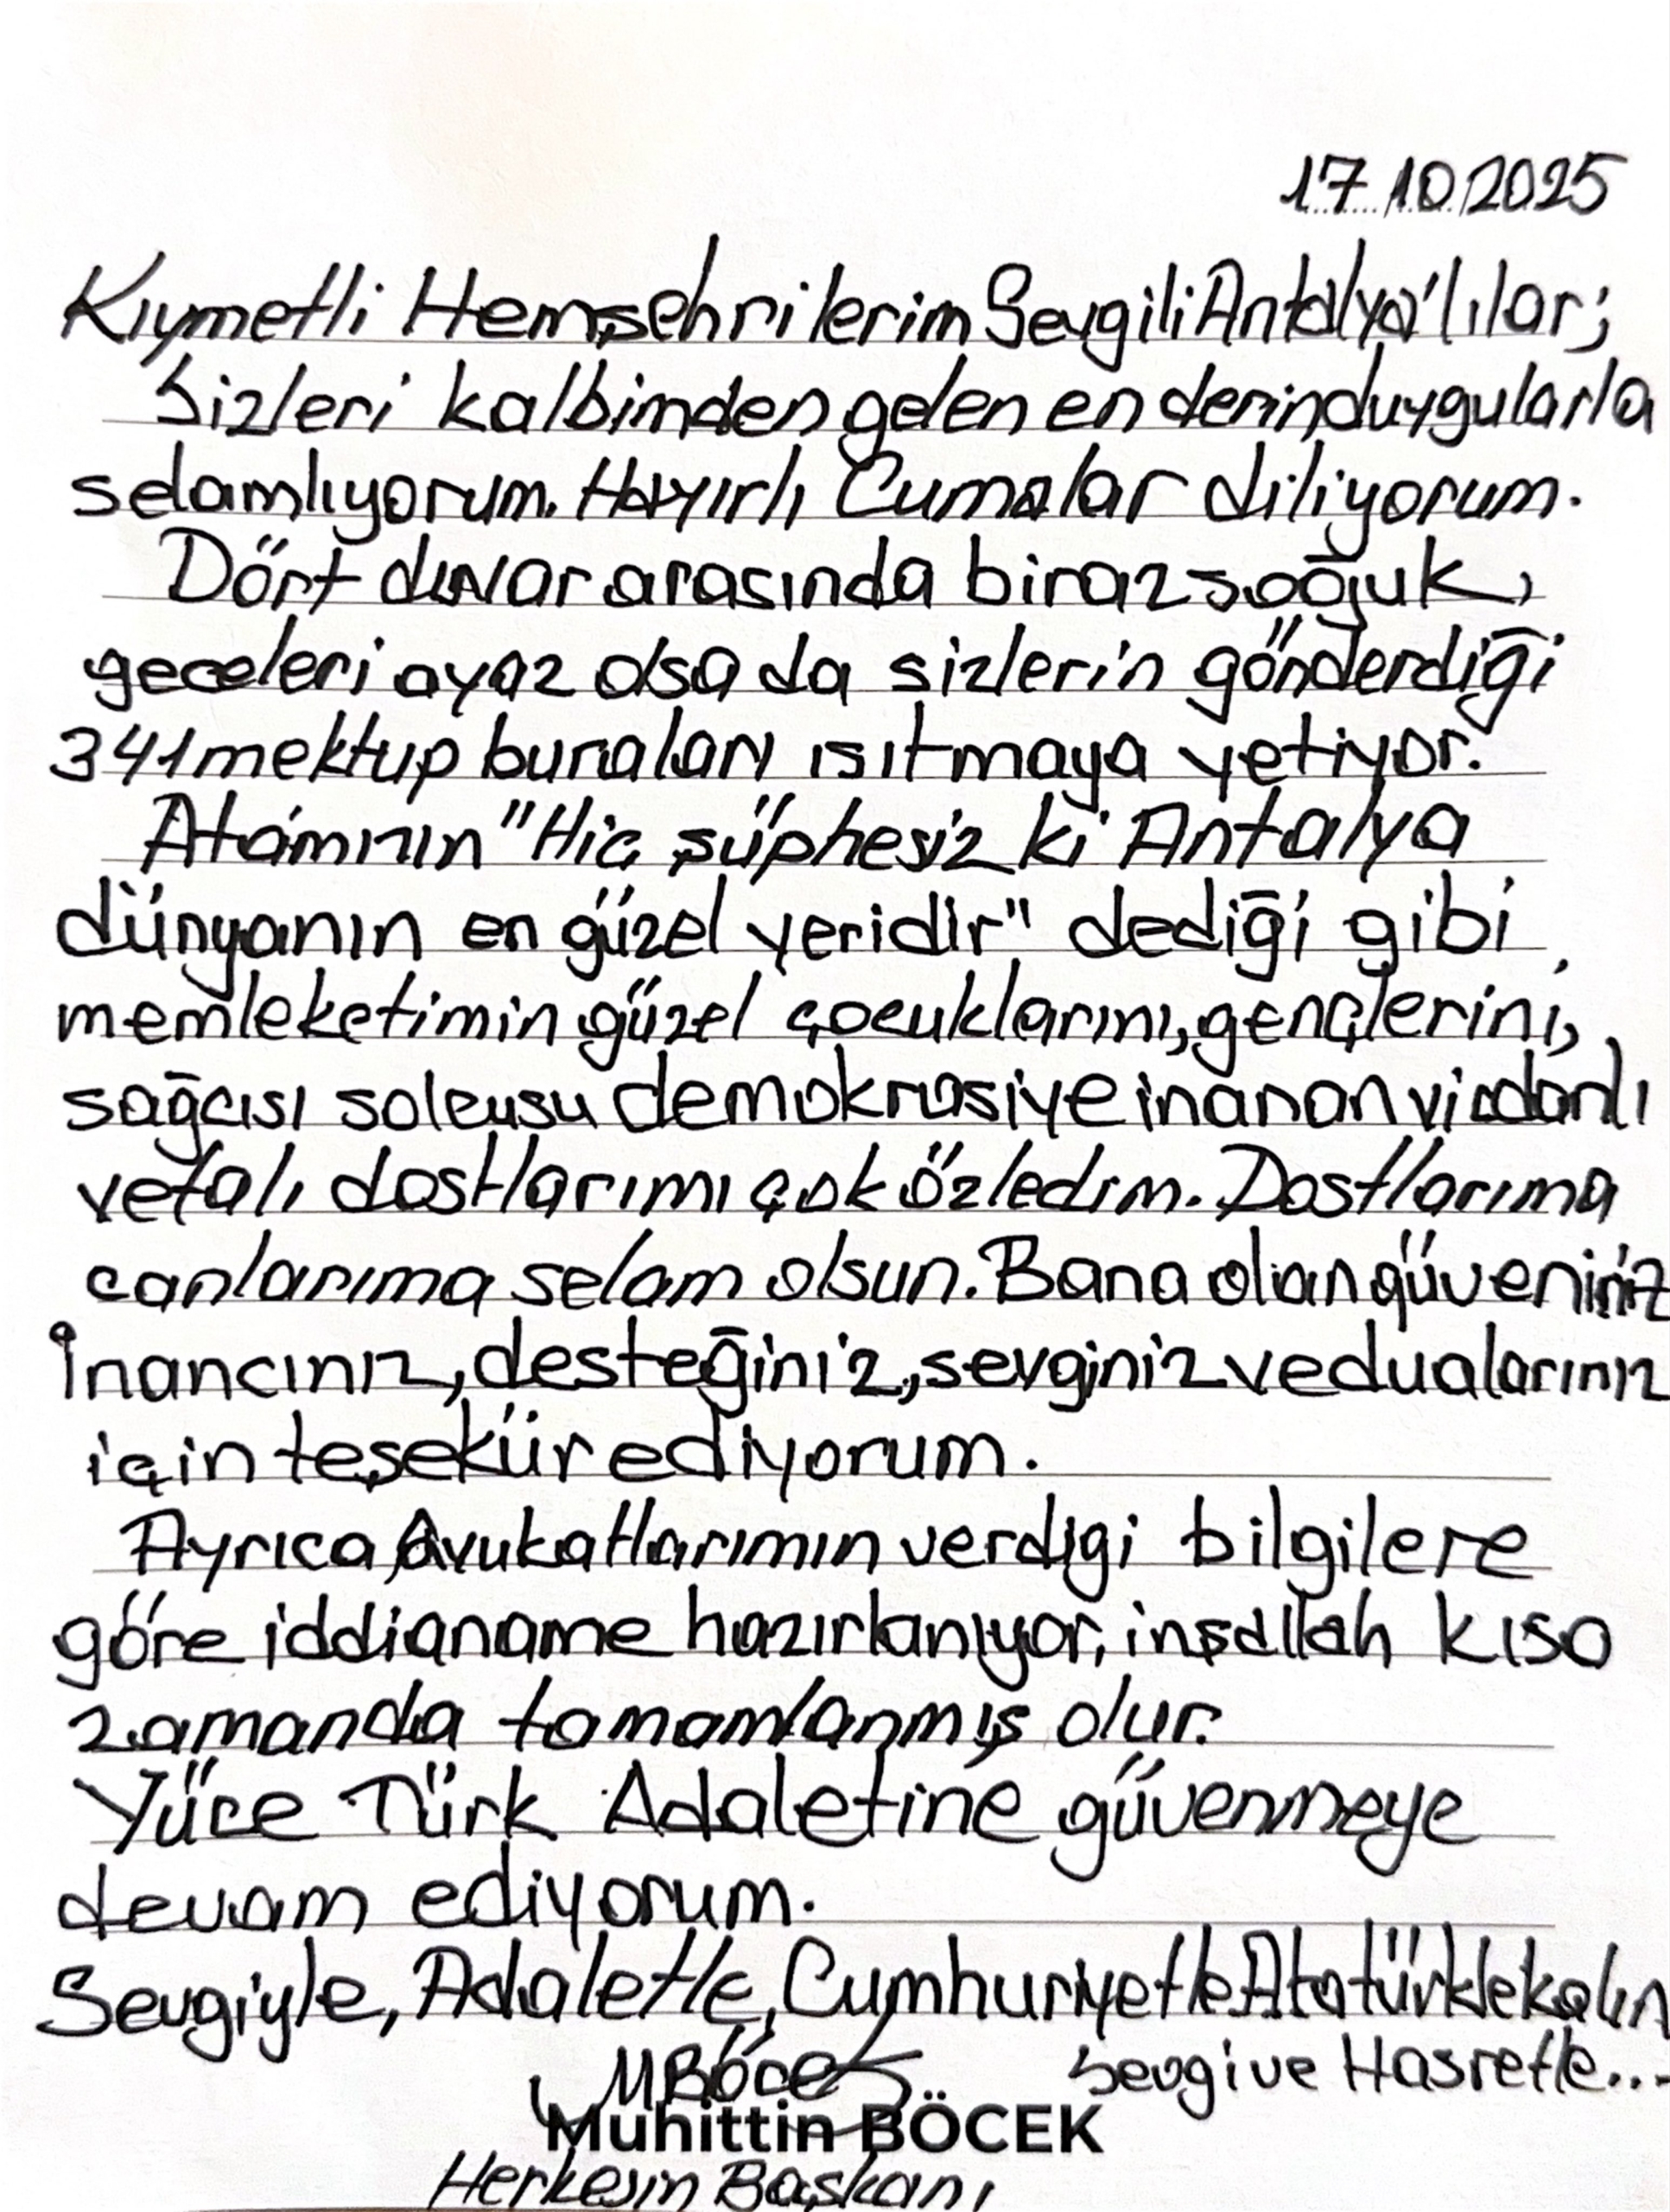 17.10.2025
Kıymetli Hemşehrilerim Sevgili Antalya'lılar;
Sizleri kalbimden gelen en derin duygularla
selamlıyorum. Hayırlı Cumalar diliyorum.
Dört duvar arasında biraz soğuk,
geceleri ayaz olsa da sizlerin gönderdiği
341 mektup buraları ısıtmaya yetiyor.
Atamızın "Hiç şüphesiz ki Antalya
dünyanın en güzel yeridir" dediği gibi,
memleketimin güzel çocuklarını, gençlerini,
sağcısı solcusu demokrasiye inanan vicdanlı
vefalı dostlarımı çok özledim. Dostlarıma
canlarıma selam olsun. Bana olan güveniniz
İnancınız, desteğiniz, sevginiz ve dualarınız
için teşekür ediyorum.
Ayrıca, Avukatlarımın verdigi bilgilere
göre iddianame hazırlanıyor, inşallah kısa
zamanda tamamlanmış olur.
Yüce Türk Adaletine güvenmeye
devam ediyorum.
Sevgiyle, Adaletle, Cumhuriyetle Atatürkle kalın
Sevgi ve Hasretle...
MBöcek
Muhittin BÖCEK
Herkesin Başkanı